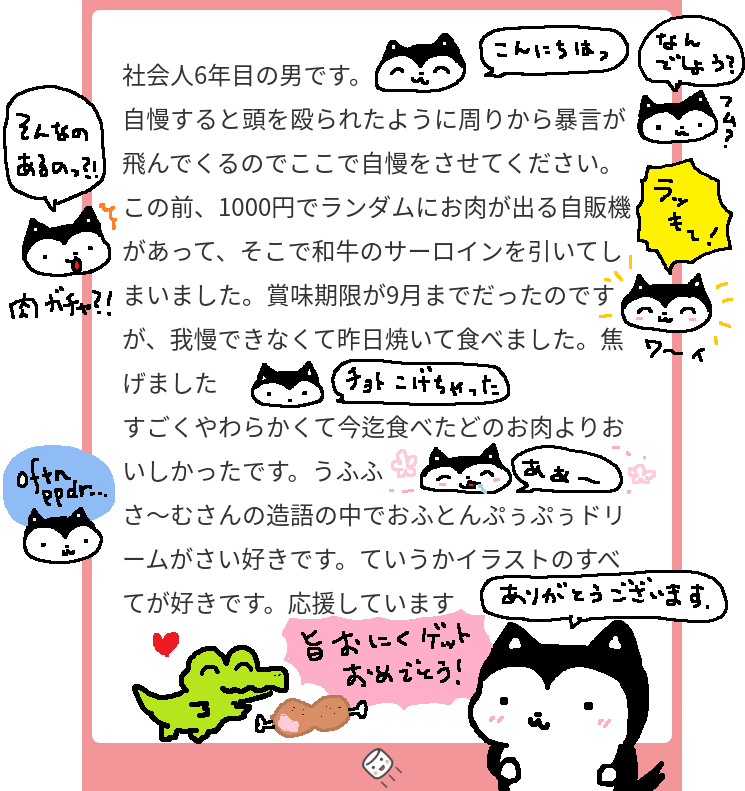 社会人6年目の男です。
こんにちはっ
なん
でしょう?
フム?
自慢すると頭を殴られたように周りから暴言が
そんなの
あるのっ?!
飛んでくるのでここで自慢をさせてください。
この前、1000円でランダムにお肉が出る自販機
ラッ
キー!
があって、そこで和牛のサーロインを引いてし
まいました。賞味期限が9月までだったのです
肉ガチャ?!
が、我慢できなくて昨日焼いて食べました。焦
ワ〜イ
げました
チョトこげちゃった
すごくやわらかくて今迄食べたどのお肉よりお
いしかったです。うふふ
あぁ〜
oftn
ppdr...
さ〜むさんの造語の中でおふとんぷぅぷぅドリ
ームがさい好きです。ていうかイラストのすべ
てが好きです。応援しています
ありがとうございます.
旨おにくゲット
おめでとう!